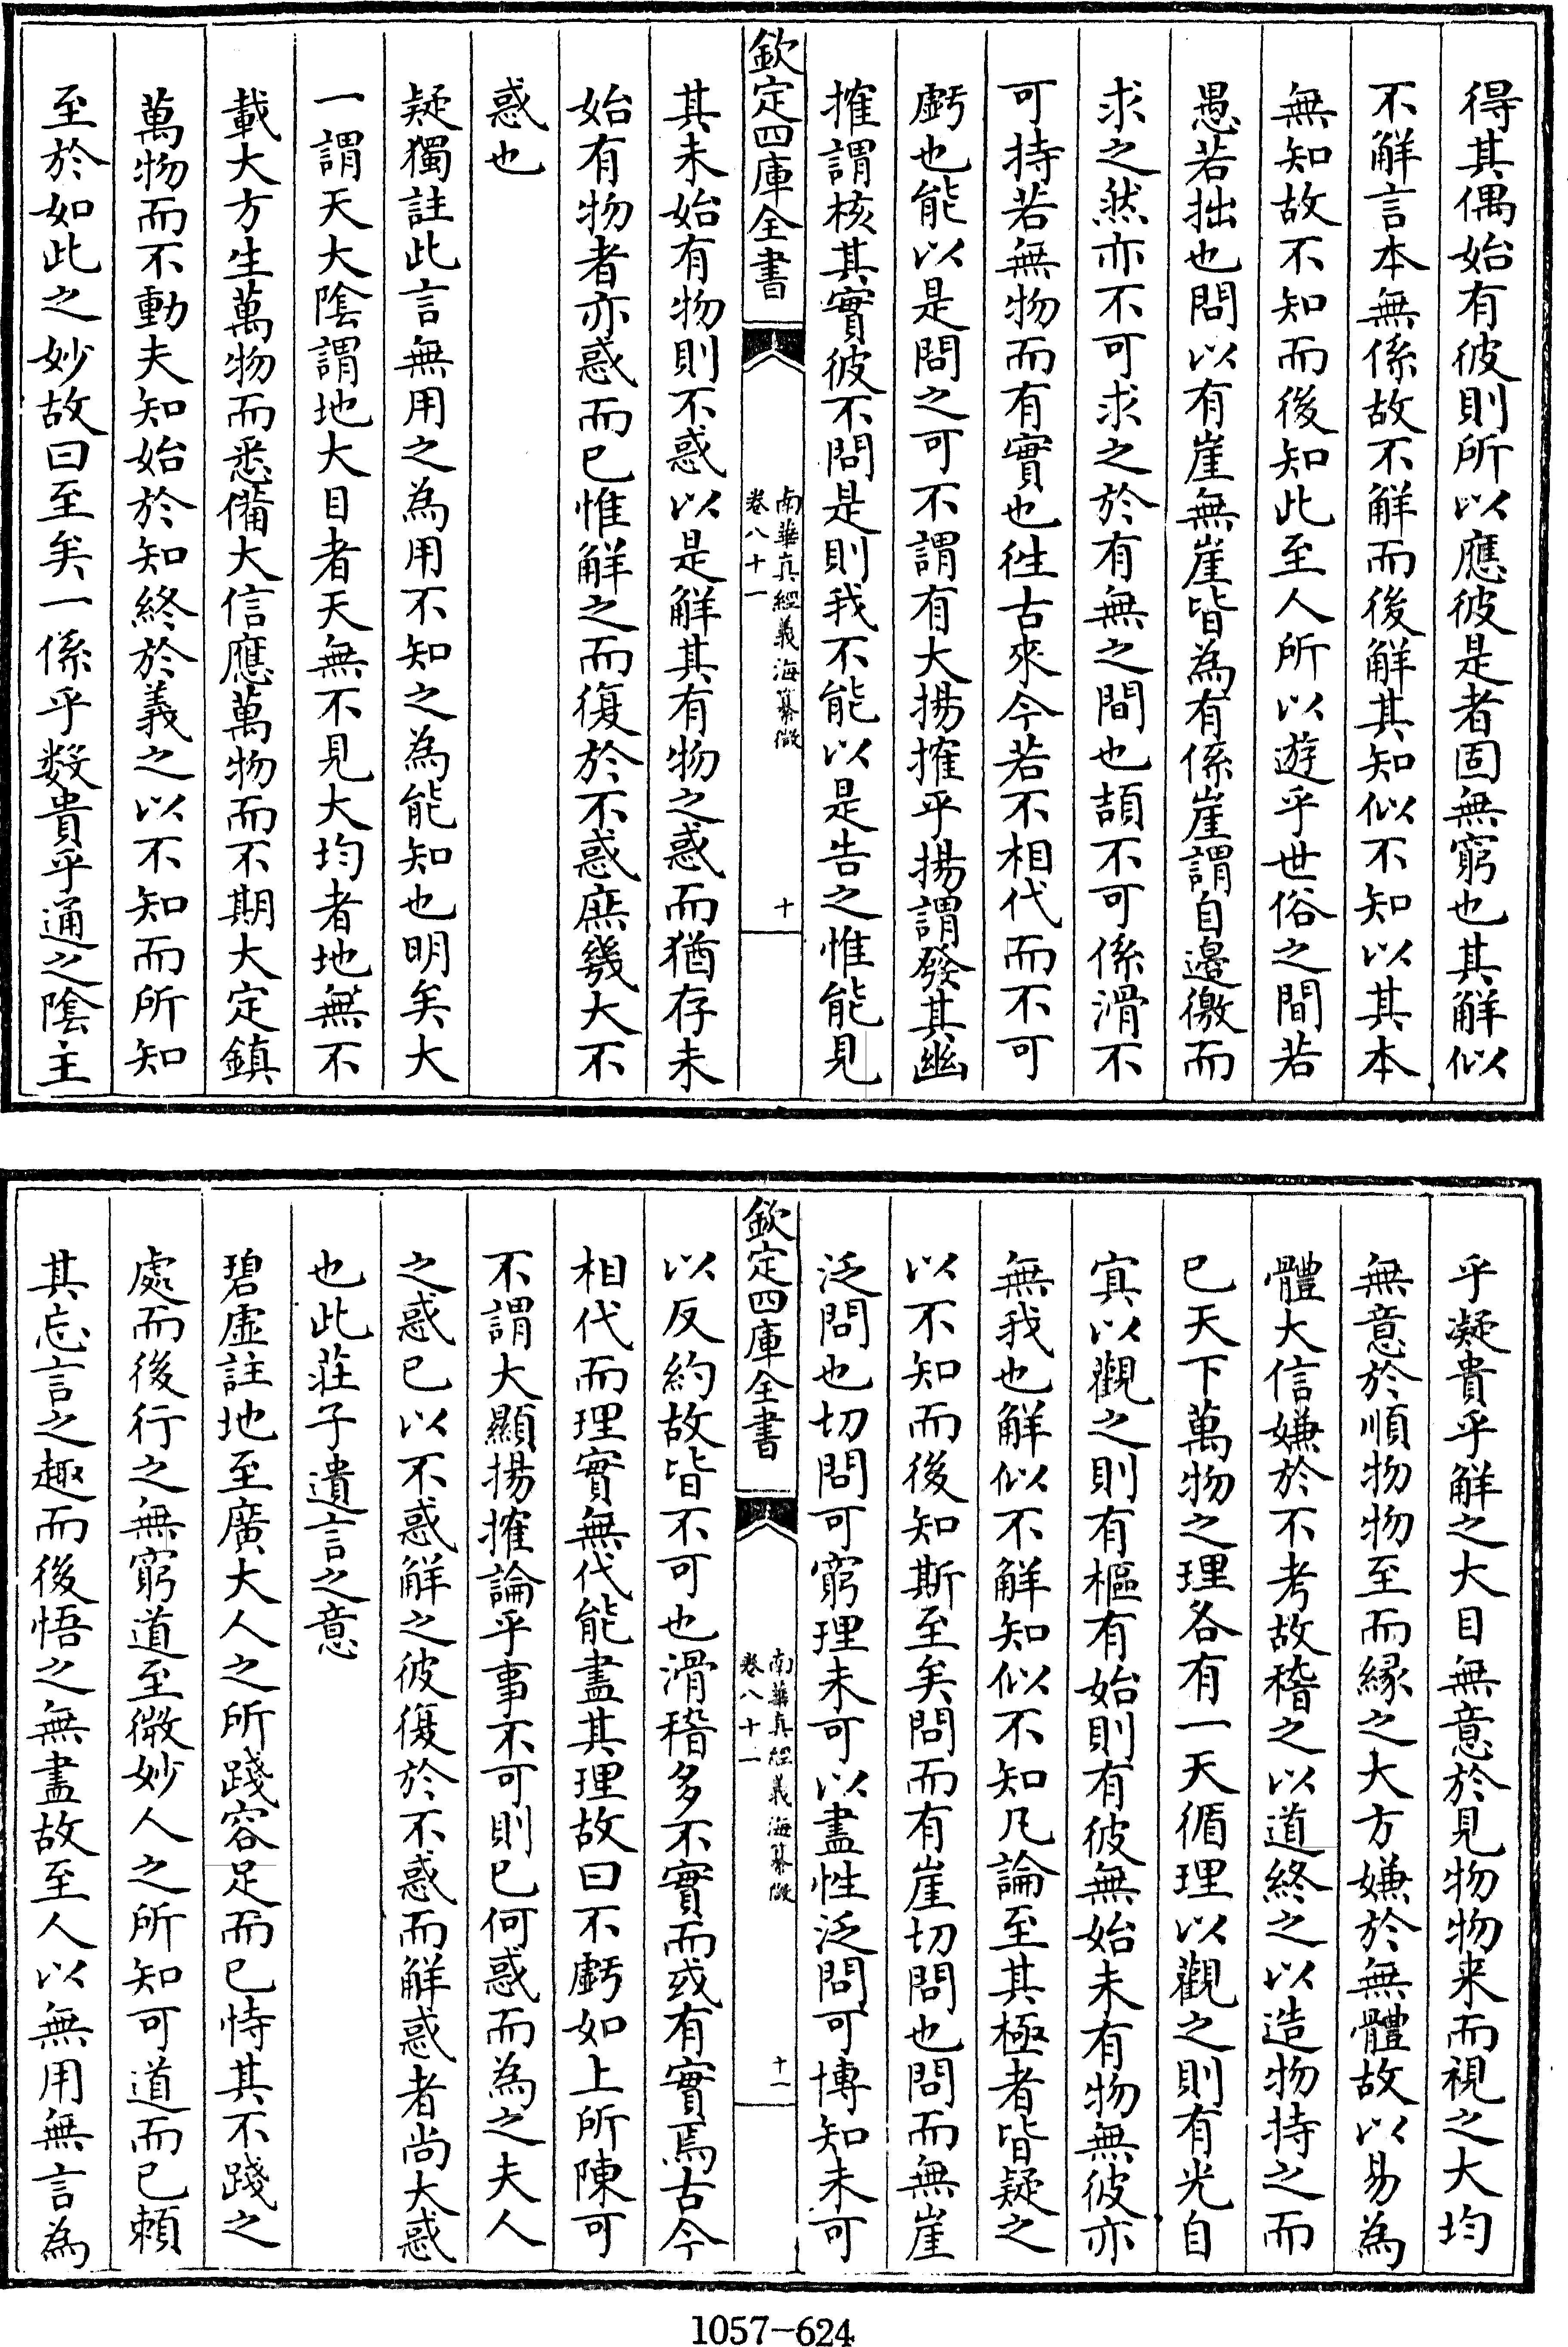 得其偶始有彼則所以應彼是者固無窮也其解似
不解言本無係故不解而後解其知似不知以其本
無知故不知而後知此至人所以遊乎世俗之間若
愚若拙也問以有崖無崖皆為有係崖謂自邉徼而
求之然亦不可求之於有無之間也頡不可係滑不
可持若無物而有實也徃古來今若不相代而不可
虧也能以是問之可不謂有大揚搉乎揚謂發其幽
搉謂核其實彼不問是則我不能以是告之惟能見
欽定四庫全書
南華真經義海纂微
卷八十一
十
其未始有物則不惑以是解其有物之惑而猶存未
始有物者亦惑而已惟解之而復於不惑庶幾大不
惑也
疑獨註此言無用之為用不知之為能知也明矣大
一謂天大隂謂地大目者天無不見大均者地無不
載大方生萬物而悉備大信應萬物而不期大定鎮
萬物而不動夫知始於知終於義之以不知而所知
至於如此之妙故曰至矣一係乎數貴乎通之隂主
乎凝貴乎解之大目無意於見物物来而視之大均
無意於順物物至而緣之大方嫌於無體故以易為
體大信嫌於不考故稽之以道終之以造物持之而
已天下萬物之理各有一天循理以觀之則有光自
㝠以觀之則有樞有始則有彼無始未有物無彼亦
無我也解似不解知似不知凡論至其極者皆疑之
以不知而後知斯至矣問而有崖切問也問而無崖
泛問也切問可窮理未可以盡性泛問可博知未可
欽定四庫全書
南華真經義海纂微
卷八十一
十一
以反約故皆不可也滑稽多不實而或有實焉古今
相代而理實無代能盡其理故曰不虧如上所陳可
不謂大顯揚搉論乎事不可則已何惑而為之夫人
之惑已以不惑解之彼復於不惑而解惑者尚大惑
也此莊子遺言之意
碧虛註地至廣大人之所踐容足而已恃其不踐之
處而後行之無窮道至微妙人之所知可道而已賴
其忘言之趣而後悟之無盡故至人以無用無言為
1057-624